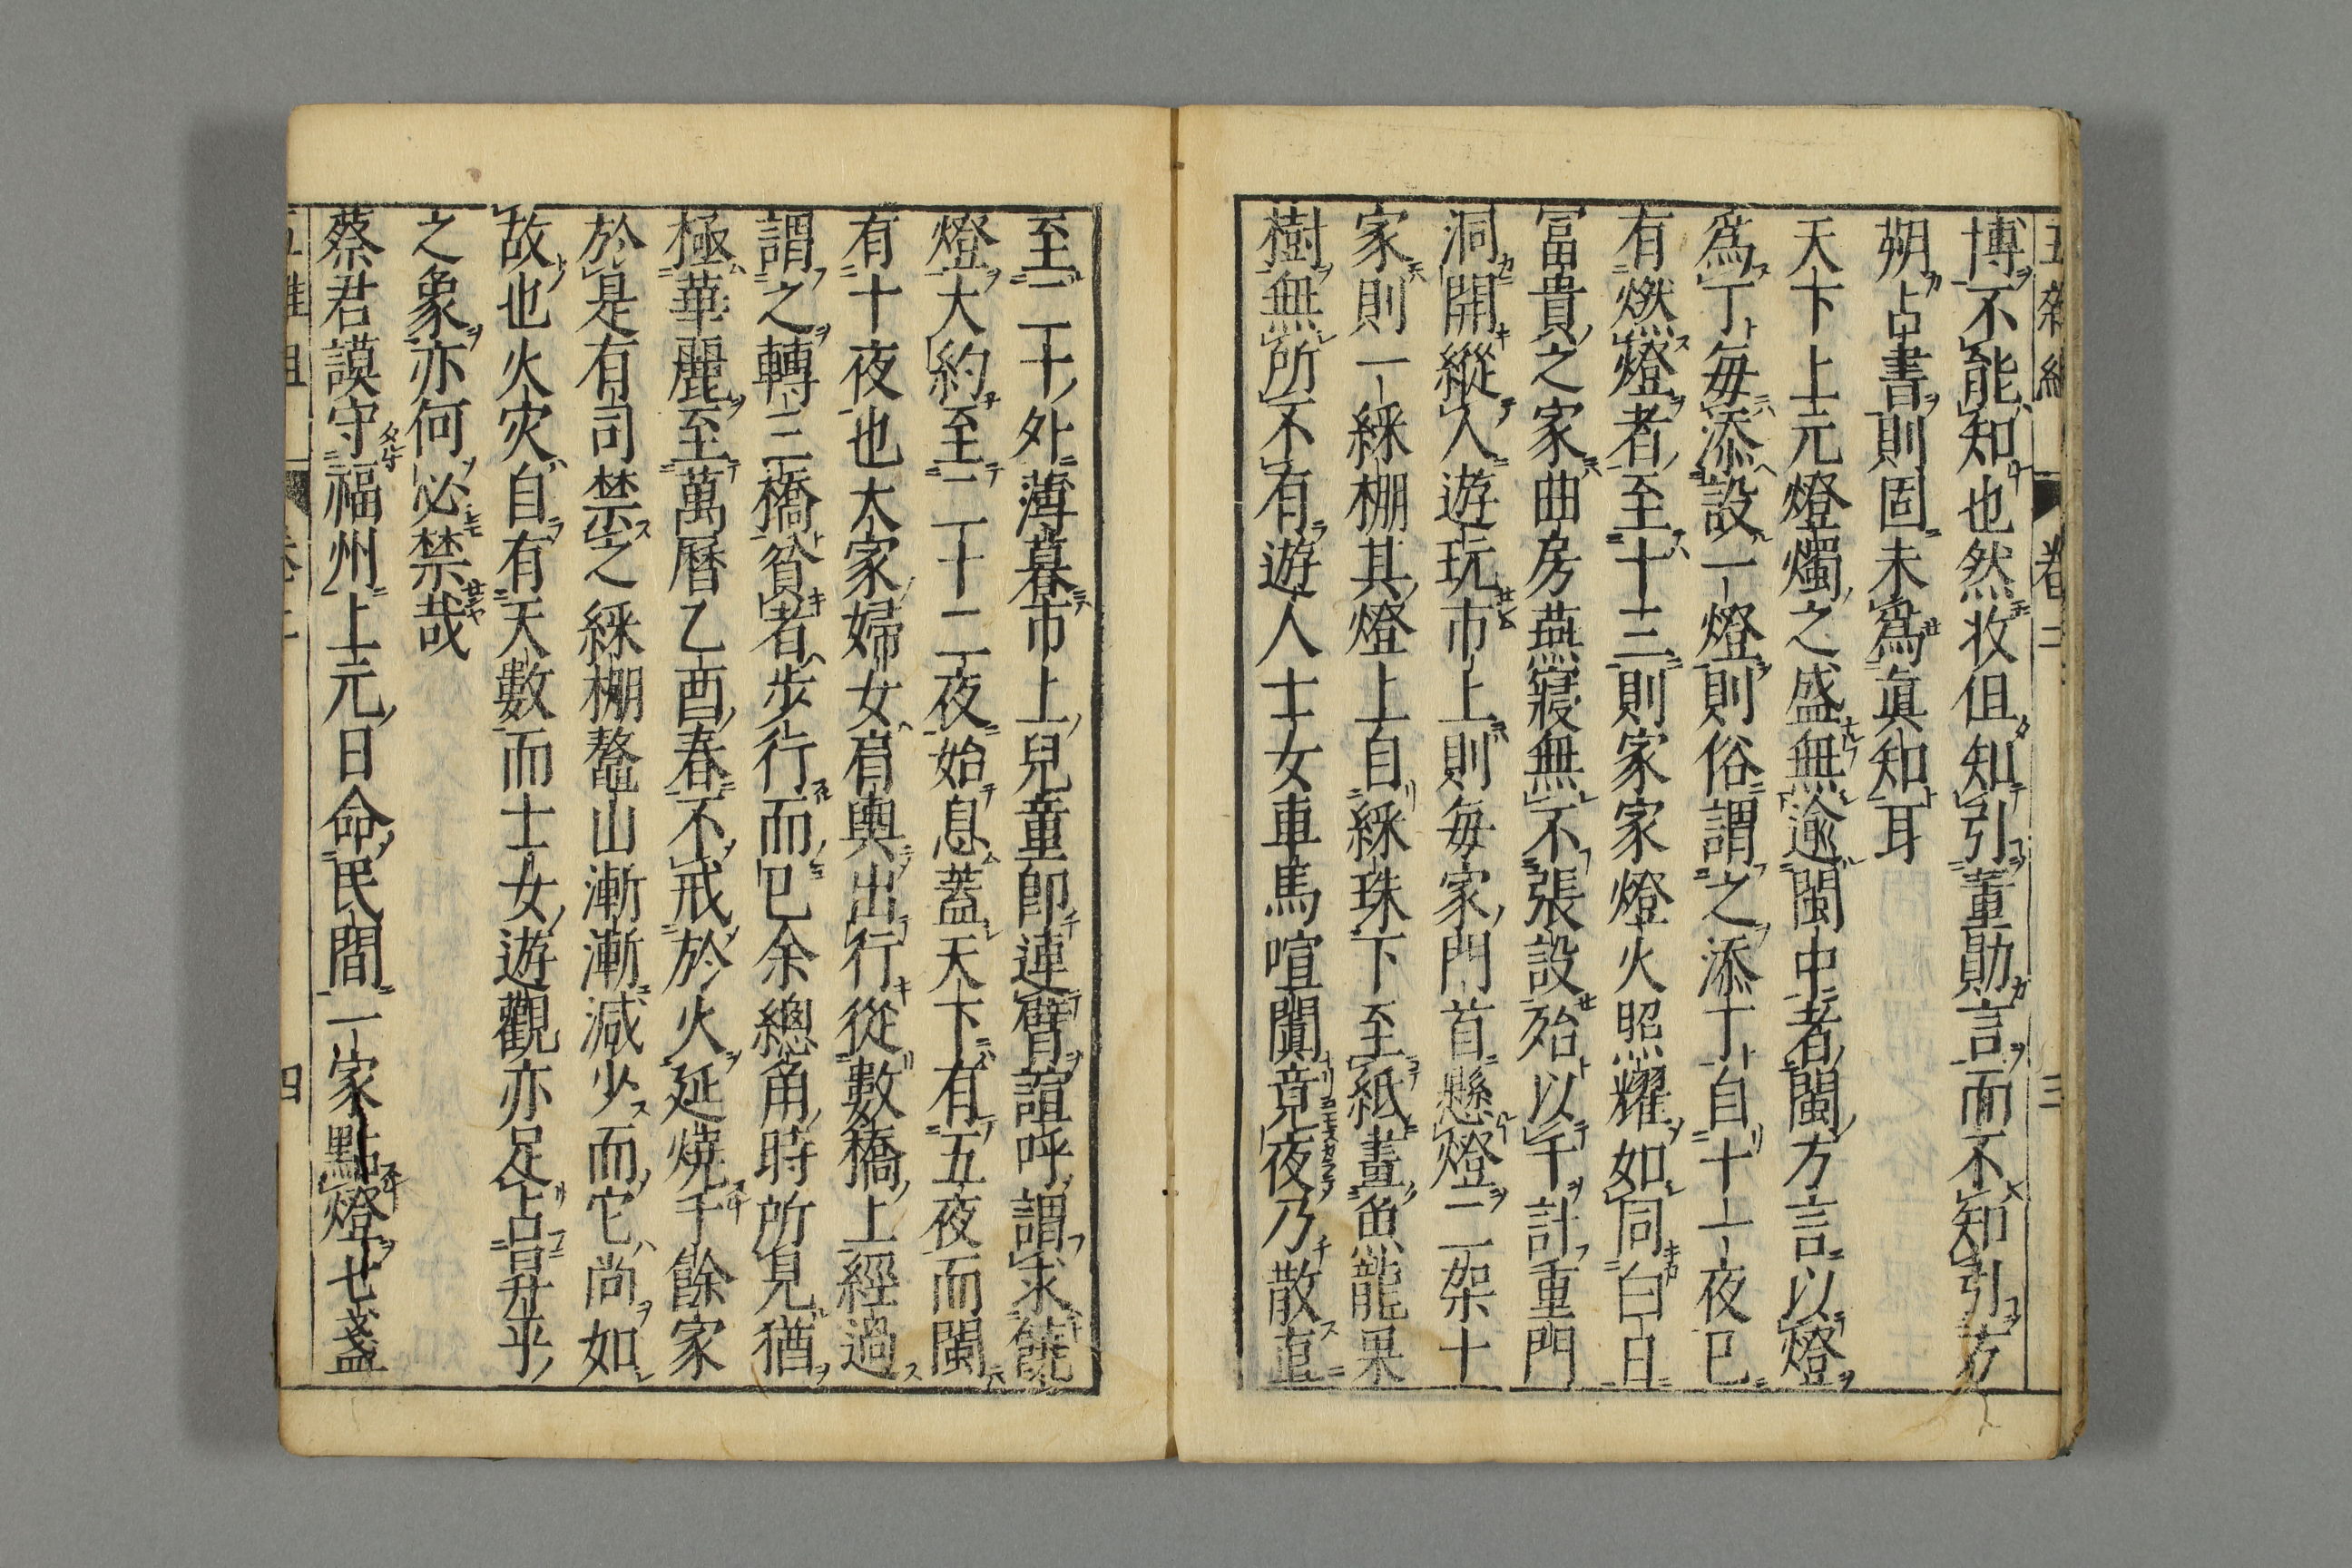 五雜組 卷二 三
博不能知也然收但知引董勛言而不知引方
朔占書則固未爲眞知耳
天下上元燈燭之盛無逾閩中者閩方言以燈
爲丁每添設一燈則俗謂之添丁自十一夜已
有燃燈者至十三則家家燈火照耀如同白日
冨貴之家曲房燕寢無不張設殆以千計重門
洞開縱人遊玩市上則每家門首懸燈二架十
家則一綵棚其燈上自綵珠下至紙畫魚龍果
樹無所不有遊人士女車馬喧闐竟夜乃散直
至二十外薄暮市上兒童卽連臂諠呼謂求饒
燈大約至二十二夜始息蓋天下有五夜而閩
有十夜也大家婦女肩輿出行從數橋上經過
謂之轉三橋貧者步行而已余總角時所見猶
極華麗至萬曆乙酉春不戒於火延燒千餘家
於是有司禁之綵棚鰲山漸漸減少而它尚如
故也火灾自有天數而士女遊觀亦足占昇平
之象亦何必禁哉
蔡君謨守福州上元日命民間一家點燈七盞
四